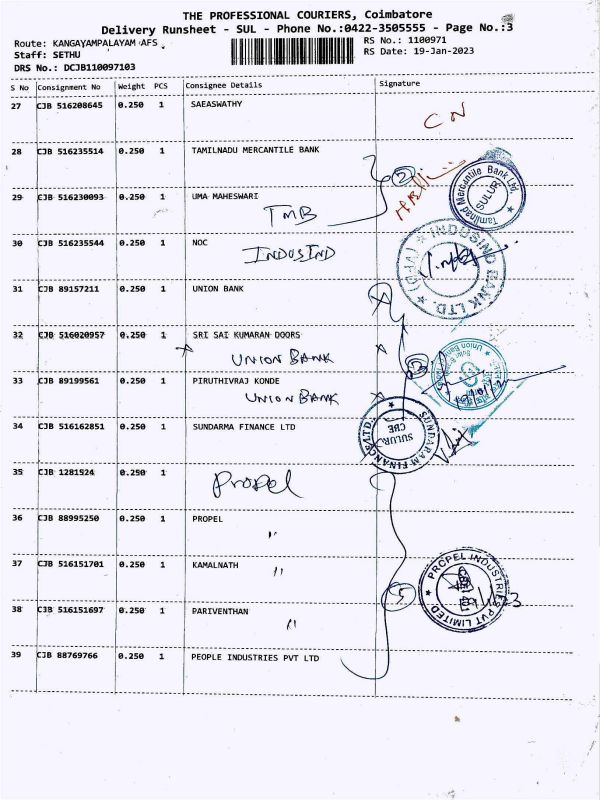 THE PROFESSIONAL COURIERS, Coimbatore
Delivery Runsheet - SUL - Phone No.:0422-3505555 - Page No.:3
Route: KANGAYAMPALAYAM AFS RS No.: 1100971
Staff: SETHU RS Date: 19-Jan-2023
DRS No.: DCJB110097103
S No Consignment No Weight PCS Consignee Details Signature
27 CJB 516208645 0.250 1 SAEASWATHY
CN
28 CJB 516235514 0.250 1 TAMILNADU MERCANTILE BANK
2
Tamilnad Mercantile Bank Ltd.
SULUR
29 CJB 516230093 0.250 1 UMA MAHESWARI
TMB
30 CJB 516235544 0.250 1 NOC
INDUSIND
INDUSIND BANK LTD.
31 CJB 89157211 0.250 1 UNION BANK
32 CJB 516020957 0.250 1 SRI SAI KUMARAN DOORS
UNION BANK
3
Union Bank
33 CJB 89199561 0.250 1 PIRUTHIVRAJ KONDE
UNION BANK
34 CJB 516162851 0.250 1 SUNDARMA FINANCE LTD
SUNDARAM FINANCE LTD.
SULUR
CBE
35 CJB 1281524 0.250 1
Propel
36 CJB 88995250 0.250 1 PROPEL
"
37 CJB 516151701 0.250 1 KAMALNATH
"
PROPEL INDUSTRIES PVT LIMITED
5
38 CJB 516151697 0.250 1 PARIVENTHAN
"
39 CJB 88769766 0.250 1 PEOPLE INDUSTRIES PVT LTD